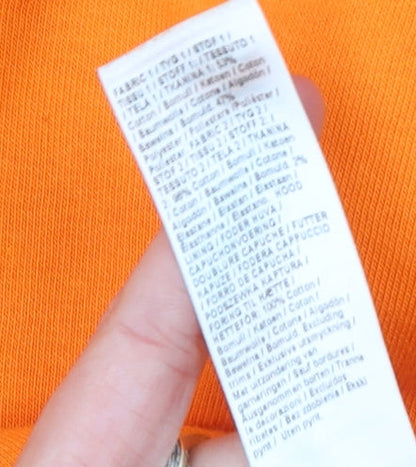 FABRIC 1 / TYG 1 / STOF 1 /
TISSU 1 / STOFF 1 / TESSUTO 1
/ TELA 1 / TKANINA 1: 53%
Cotton / Bomull / Katoen / Coton
/ Baumwolle / Cotone / Algodón /
Bawełna / Bomuld. 47%
Polyester / Poliestere / Poliéster /
Poliester. FABRIC 2 / TYG 2 /
STOF 2 / TISSU 2 / STOFF 2 /
TESSUTO 2 / TELA 2 / TKANINA
2: 98% Cotton / Bomull / Katoen
/ Coton / Baumwolle / Cotone /
Algodón / Bawełna / Bomuld. 2%
Elastane / Elastan / Elastaan /
Élasthanne / Elastano. HOOD
LINING / FODER HUVA /
CAPUCHONVOERING /
DOUBLURE CAPUCHE / FUTTER
KAPUZE / FODERA CAPPUCCIO
/ FORRO DE CAPUCHA /
PODSZEWKA KAPTURA /
FORING TIL HÆTTE /
HETTEFÔR: 100% Cotton /
Bomull / Katoen / Coton /
Baumwolle / Cotone / Algodón /
Bawełna / Bomuld. Excluding
trims / Exklusive utsmyckning /
Met uitzondering van
garneringen / Sauf bordures /
Ausgenommen borten / Tranne
le decorazioni / Excluidos
ribetes / Bez zdobienia / Ekskl
pynt / Uten pynt.